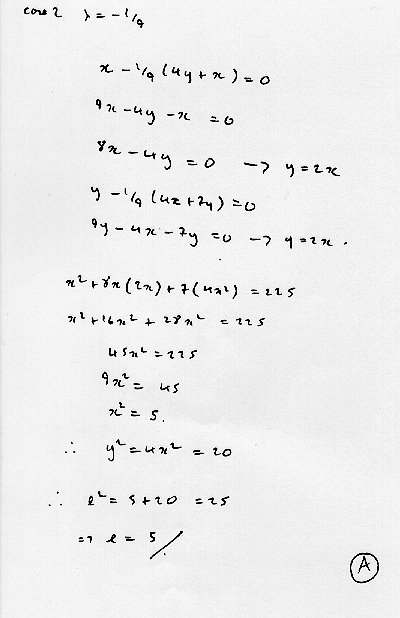 case 2 λ = -1/9
x - 1/9 (4y + x) = 0
9x - 4y - x = 0
8x - 4y = 0 → y = 2x
y - 1/9 (4x + 7y) = 0
9y - 4x - 7y = 0 → y = 2x.
x² + 8x(2x) + 7(4x²) = 225
x² + 16x² + 28x² = 225
45x² = 225
9x² = 45
x² = 5.
∴ y² = 4x² = 20
∴ l² = 5 + 20 = 25
⇒ l = 5 /
A